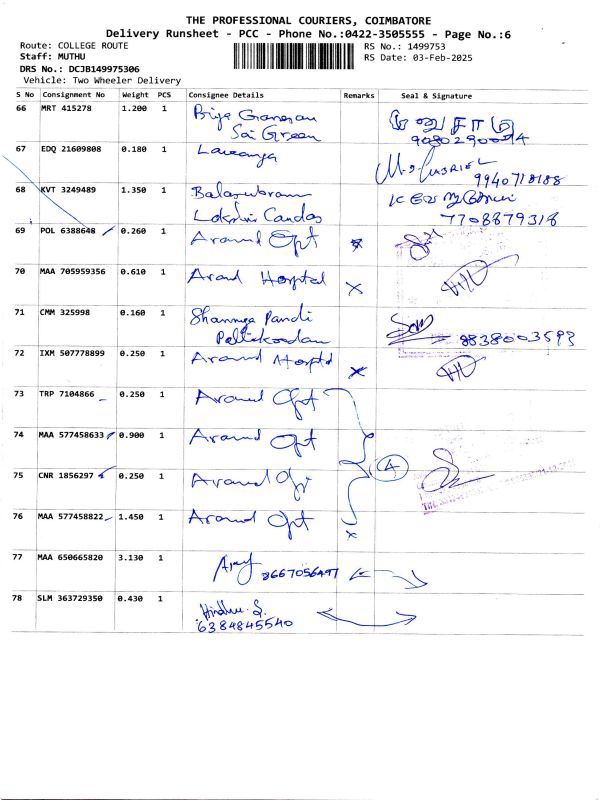 THE PROFESSIONAL COURIERS, COIMBATORE
Delivery Runsheet - PCC - Phone No.:0422-3505555 - Page No.:6
Route: COLLEGE ROUTE RS No.: 1499753
Staff: MUTHU RS Date: 03-Feb-2025
DRS No.: DCJB149975306
Vehicle: Two Wheeler Delivery
S No Consignment No Weight PCS Consignee Details Remarks Seal & Signature
66 MRT 415278 1.200 1 Priya
Sai Green
9080290094
67 EDQ 21609808 0.180 1 Lavanya
9940718188
68 KVT 3249489 1.350 1 Balasubram
Lakshmi
7708879318
69 POL 6388648 0.260 1 Aravind Opt
70 MAA 705959356 0.610 1 Aravind Hospital X
71 CMM 325998 0.160 1 Shanmuga Pandi
Pallikoodam 8838003593
72 IXM 507778899 0.250 1 Aravind Hospital X
73 TRP 7104866 0.250 1 Aravind Opt
74 MAA 577458633 0.900 1 Aravind Opt
4
75 CNR 1856297 0.250 1 Aravind Opt
76 MAA 577458822 1.450 1 Aravind Opt X
77 MAA 650665820 3.130 1 8667056497
78 SLM 363729350 0.430 1 Hindhu S.
6384845540